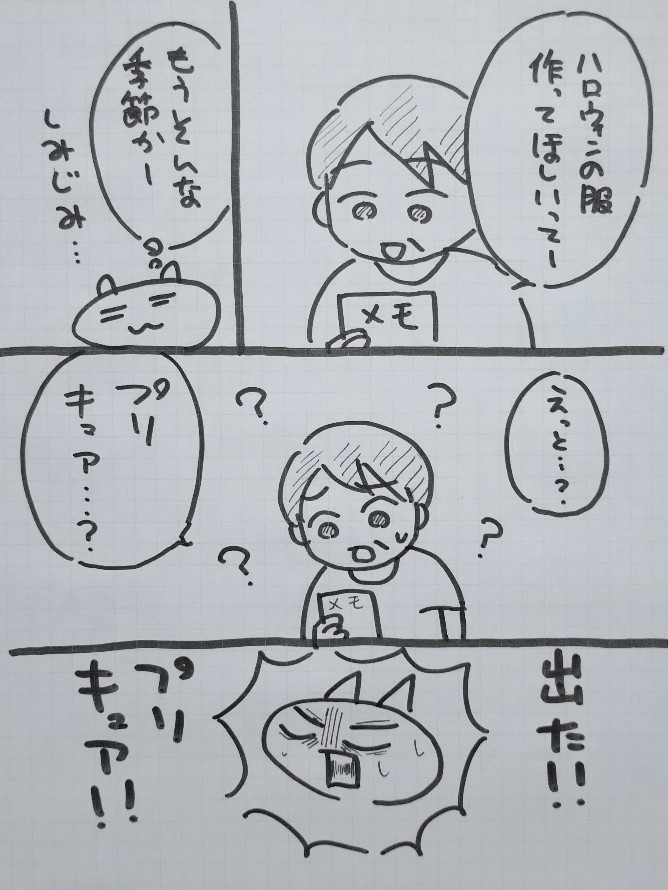 ハロウィンの服
作ってほしいってー
メモ
もうそんな
季節かー
しみじみ…
?
?
えっと…?
?
?
メモ
プリ
キュア…?
出た!!
プリ
キュア!!